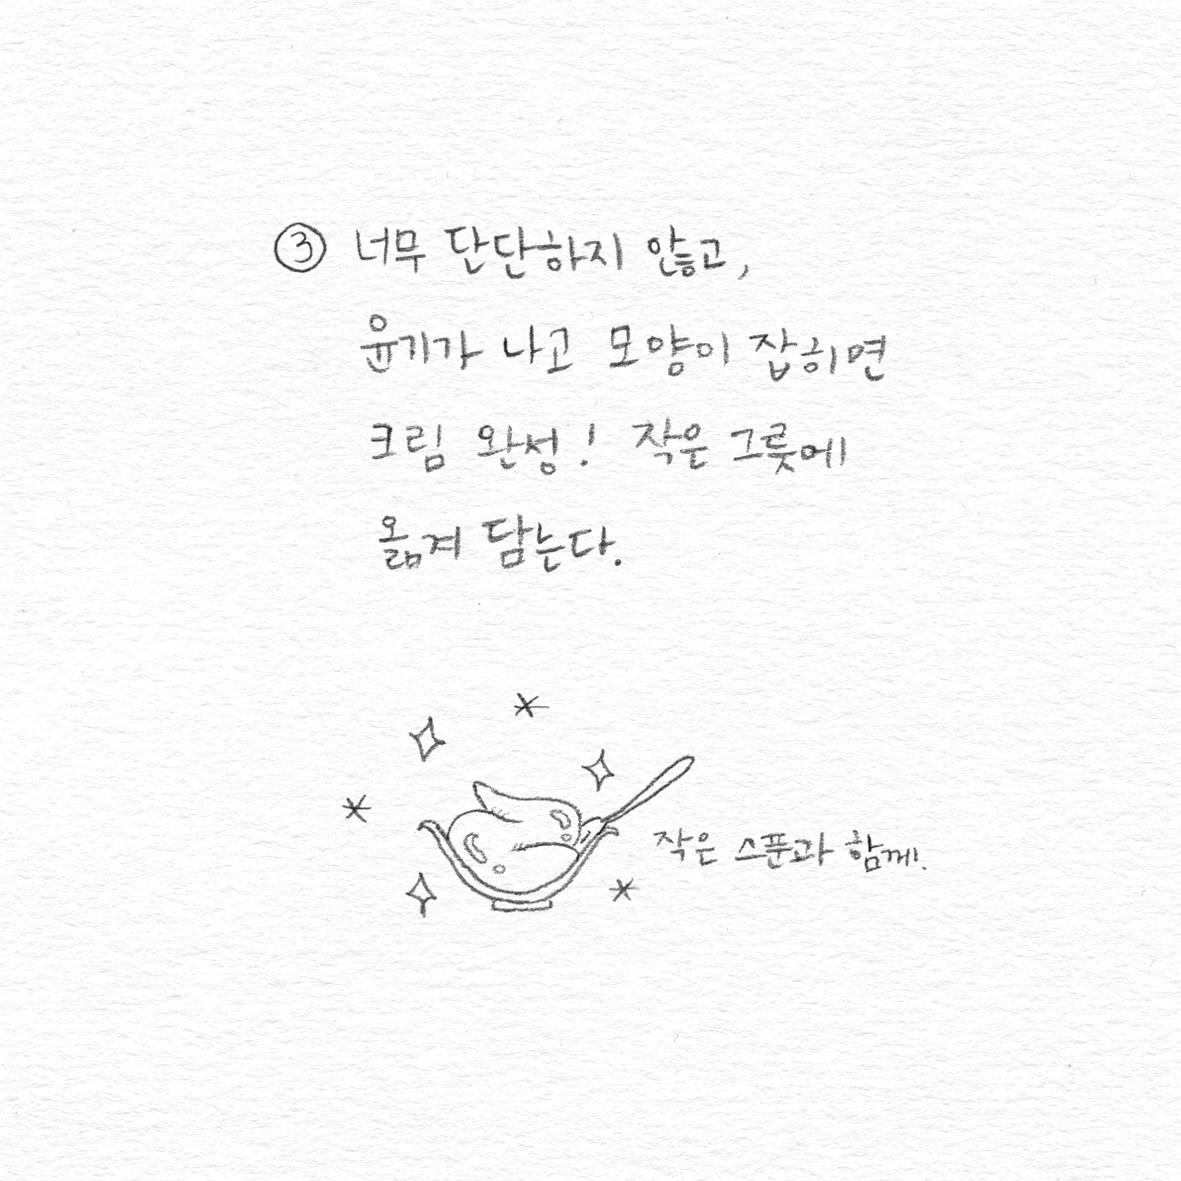 ③ 너무 단단하지 않고,
윤기가 나고 모양이 잡히면
크림 완성! 작은 그릇에
옮겨 담는다.
작은 스푼과 함께!